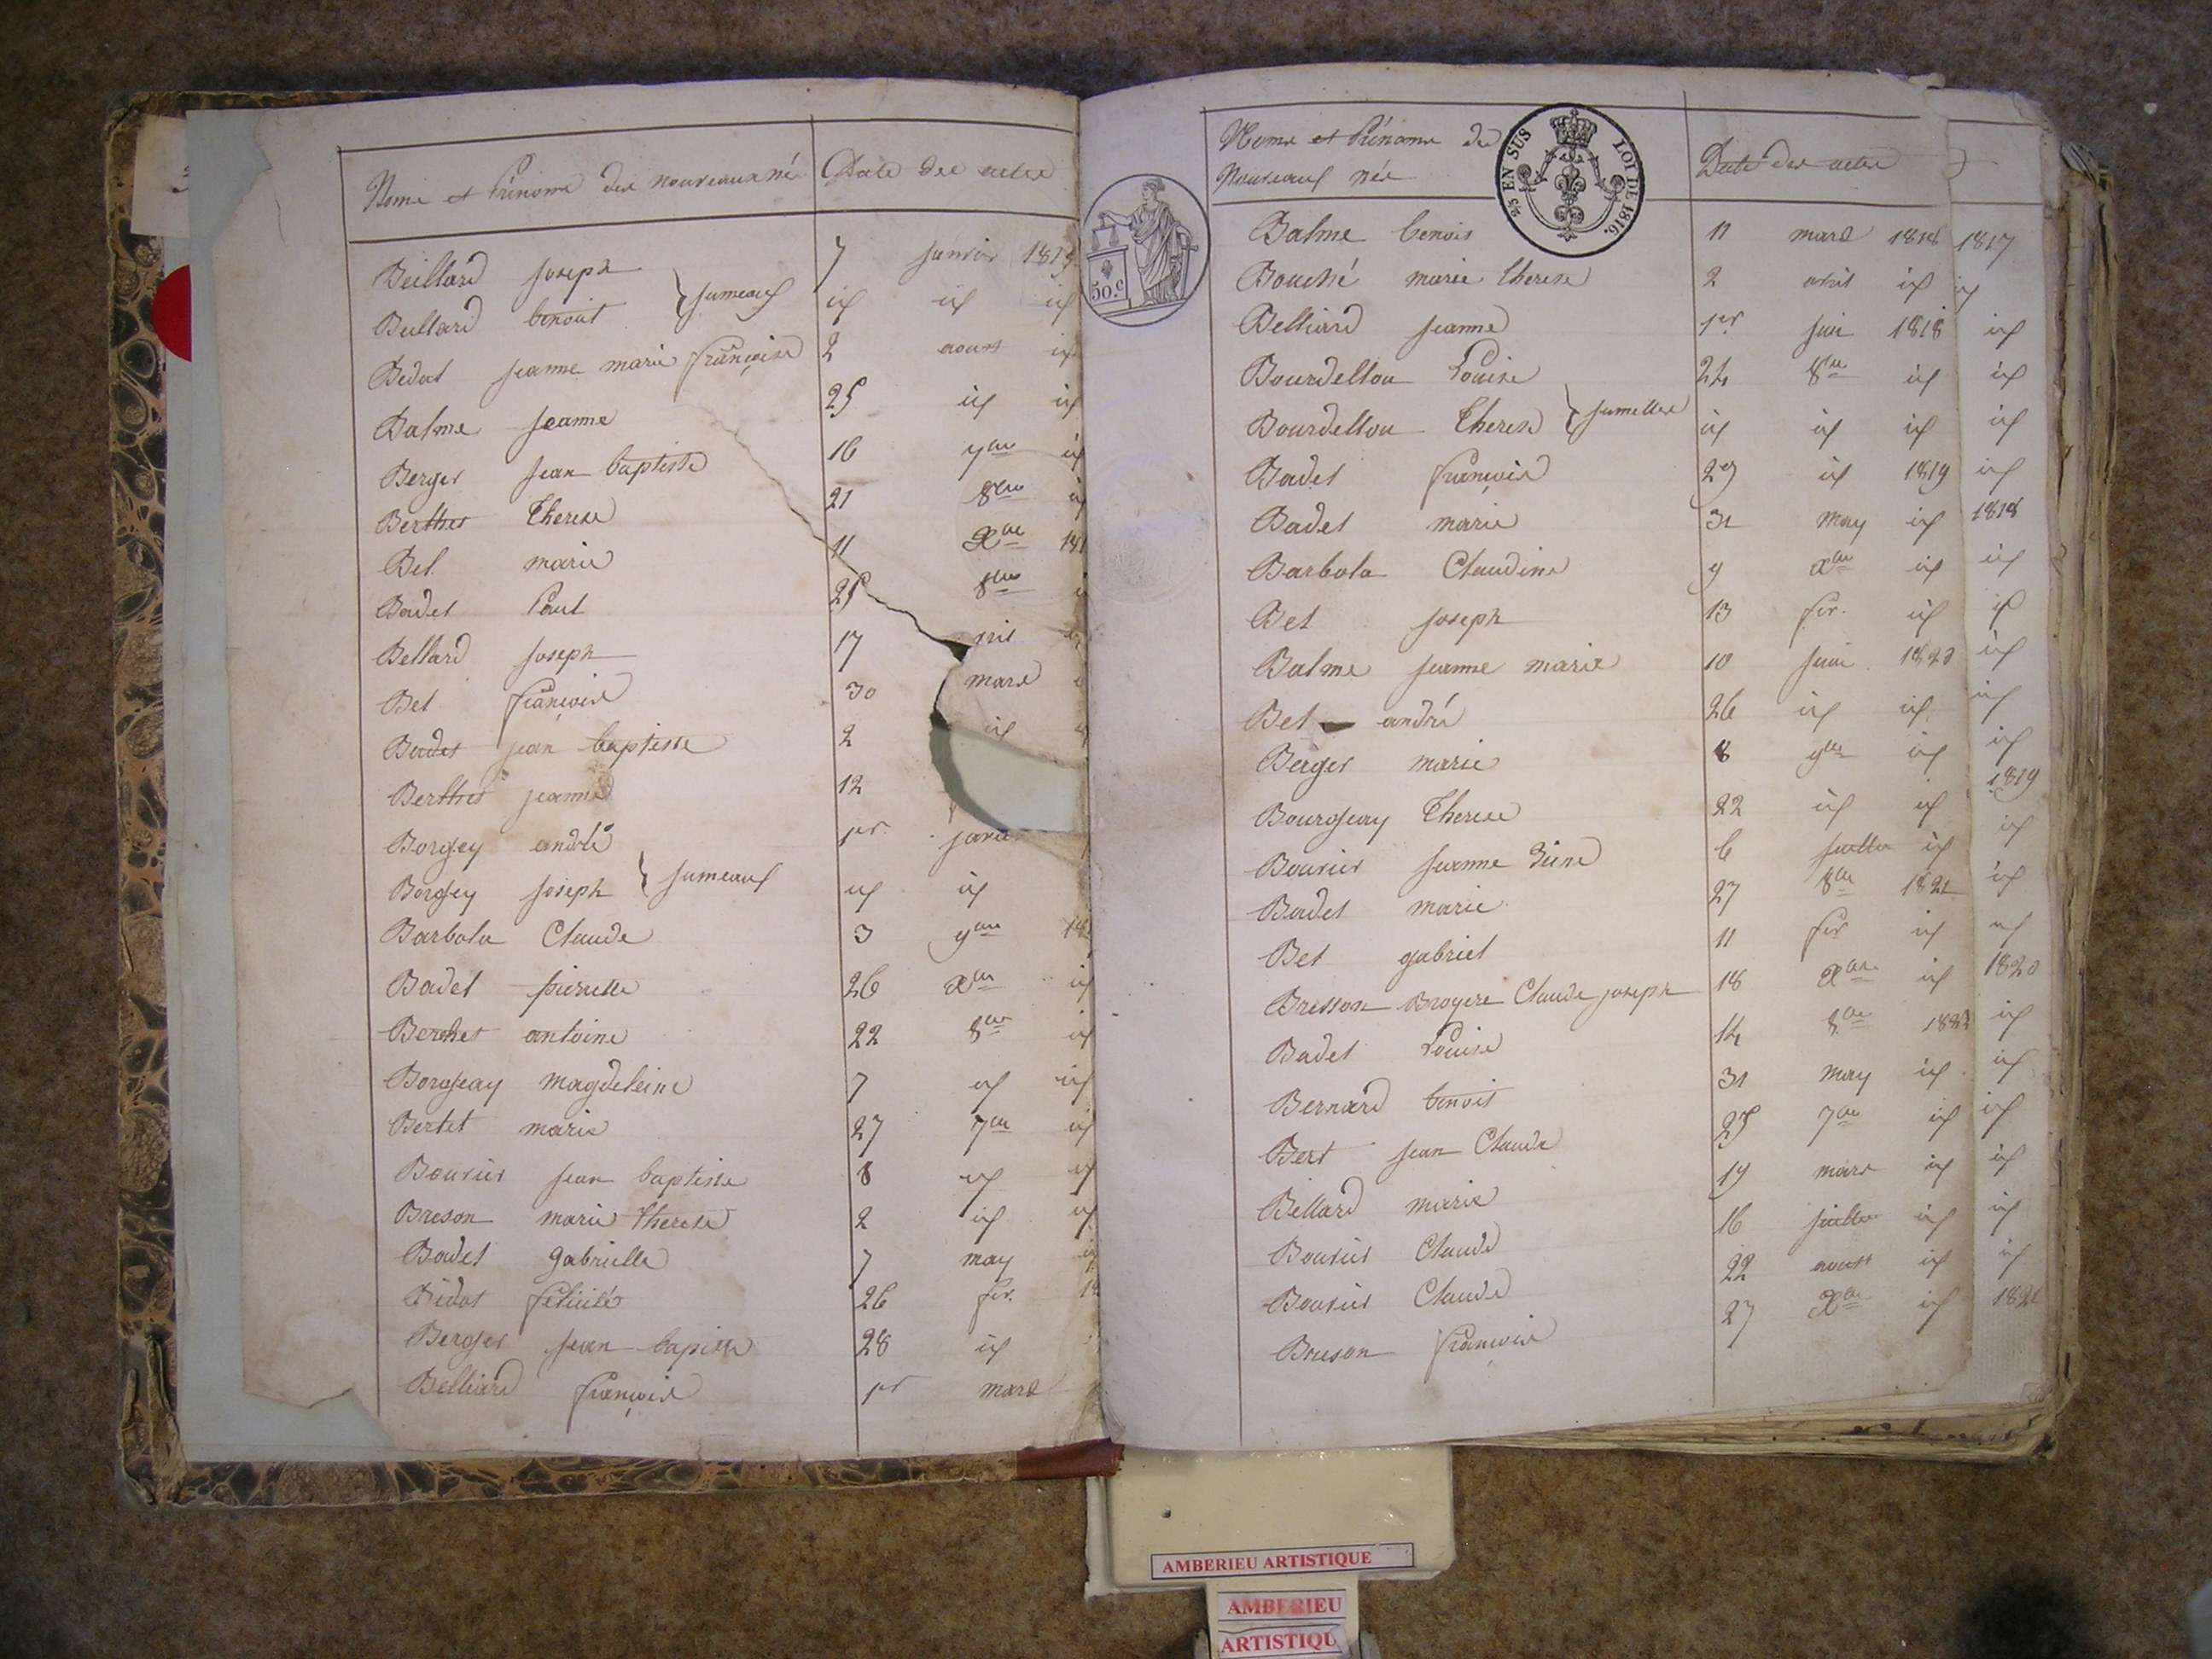 Noms et Prénoms des nouveaux nés Date des actes
Beillard Joseph 7 janvier
Beillard benoit jumeaux id id id
Bidot jeanne marie françoise 2 aoust id
Balme Jeanne 25 id id
Berger jean baptiste 16 id
Berthet Therese 21 8bre
Bel marie 11 Xbre
Badet Paul 25 8bre
Bellard Joseph 17
Bel françois 30 mars
Badet jean baptiste 2 id
Berthet jeanne 12
Borgey andré 1er
Borgey joseph jumeaux id id
Barbola Claude 3 9bre
Badet pierrette 26 Xbre id
Berthet antoine 22 8bre id
Borgeay magdeleine 7 id id
Bertet marie 27 7bre id
Bourier jean baptiste 8 id id
Breson marie therese 2 id id
Badet gabrielle 7 may
Bidot felicité 26 fer.
Berger jean baptiste 28 id
Belliard françois 1er mars
50.c
Noms et Prénoms des
Nouveaux nés
Date des actes
2/5 EN SUS
LOI DE 1816.
Balme benois 11 mars 1818 1817
Bouché marie therese 2 avril id id
Belliard jeanne 1er juin 1818 id
Bourdellon Louise 24 8bre id id
Bourdellon Therese jumelles id id id id
Badet françois 29 id 1819 id
Badet marie 31 may id 1818
Barbola Claudine 9 Xbre id id
Bel joseph 13 fer. id id
Balme jeanne marie 10 juin 1820 id
Bel andré 26 id id id
Berger marie 8 9bre id id
Bourgeay Therese 22 id id 1819
Bourier jeanne 6 juillet id id
Badet marie 27 8bre 1821 id
Bel gabriel 11 fer id id
Bresson Broyere Claude joseph 18 Xbre id 1820
Badet Louise 14 8bre 1822 id
Bernard benoit 31 may id id
Bert jean Claude 25 7bre id id
Billard marie 19 mars id id
Bourier Claude 16 juillet id id
Bourier Claude 22 aoust id id
Breson françois 27 Xbre id
AMBERIEU ARTISTIQUE
AMBERIEU
ARTISTIQU